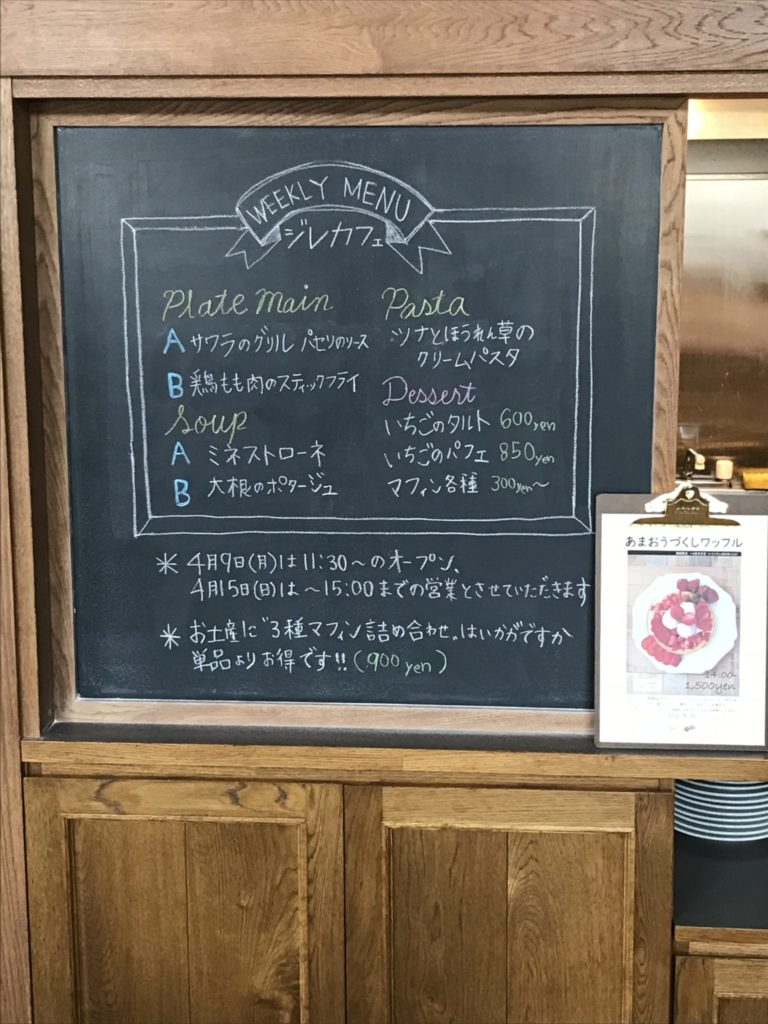 WEEKLY MENU
ジレカフェ
Plate Main
A サワラのグリル パセリのソース
B 鶏もも肉のスティックフライ
Soup
A ミネストローネ
B 大根のポタージュ
Pasta
ツナとほうれん草の
クリームパスタ
Dessert
いちごのタルト 600yen
いちごのパフェ 850yen
マフィン各種 300yen〜
＊ 4月9日(月)は11:30〜のオープン、
4月15日(日)は〜15:00までの営業とさせていただきます
＊ お土産に"3種マフィン詰め合わせ"はいかがですか
単品よりお得です!!(900yen)
あまおうづくしワッフル
14:00-
1,500yen